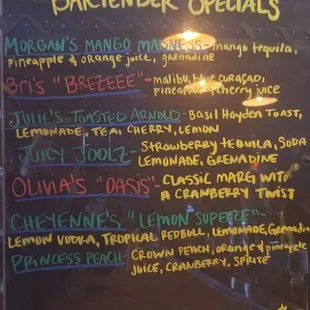 BARTENDER SPECIALS
MORGAN'S MANGO MADNESS - mango tequila,
pineapple & orange juice, grenadine
Bri's "BREZEEE" - malibu, blue curaçao,
pineapple, cherry juice
JULIE'S TOASTED ARNOLD - BASIL HAYDEN TOAST,
LEMONADE, TEA, CHERRY, LEMON
JUICY JOOLZ - STRAWBERRY TEQUILA, SODA
LEMONADE, GRENADINE
OLIVIA'S "OASIS" - CLASSIC MARG WITH
A CRANBERRY TWIST
CHEYENNE'S "LEMON SUPEZE" -
LEMON VODKA, TROPICAL REDBULL, LEMONADE, Grenadi
PRINCESS PEACH - CROWN PEACH, orange & pineapple
JUICE, CRANBERRY, SPRITE